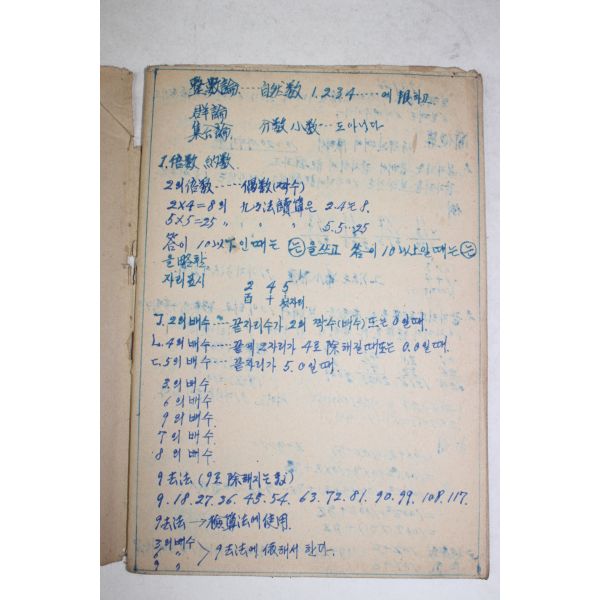 整數論 …… 自然数 1.2.3.4 …… 에 限하고
群論
集合論 分数 小数 … 도아니다
I. 倍数 約数
2의 倍数 …… 偶数 (짝수)
2×4=8의 九々法 讀算은 2.4는 8.
5×5=25 〃 〃 〃 5.5…25
答이 10以下인때는 는을쓰고 答이 10以上일때는 는
을 略함
자리표시 2 4 5
百 十 첫자리
ㄱ. 2의배수 … 끝자리수가 2의 짝수(배수) 또는 0일때.
ㄴ. 4의배수 … 끝에 2자리가 4로 除해질때또는 0.0일때.
ㄷ. 5의배수 … 끝자리가 5.0일때.
3의배수
6의배수
9의배수
7의배수.
8의배수.
9去法 (9로 除해지는数)
9.18.27.36.45.54. 63.72.81. 90.99. 108.117.
9去法 → 検算法에使用.
3의배수
6 〃 9去法에 依해서 한다.
9 〃